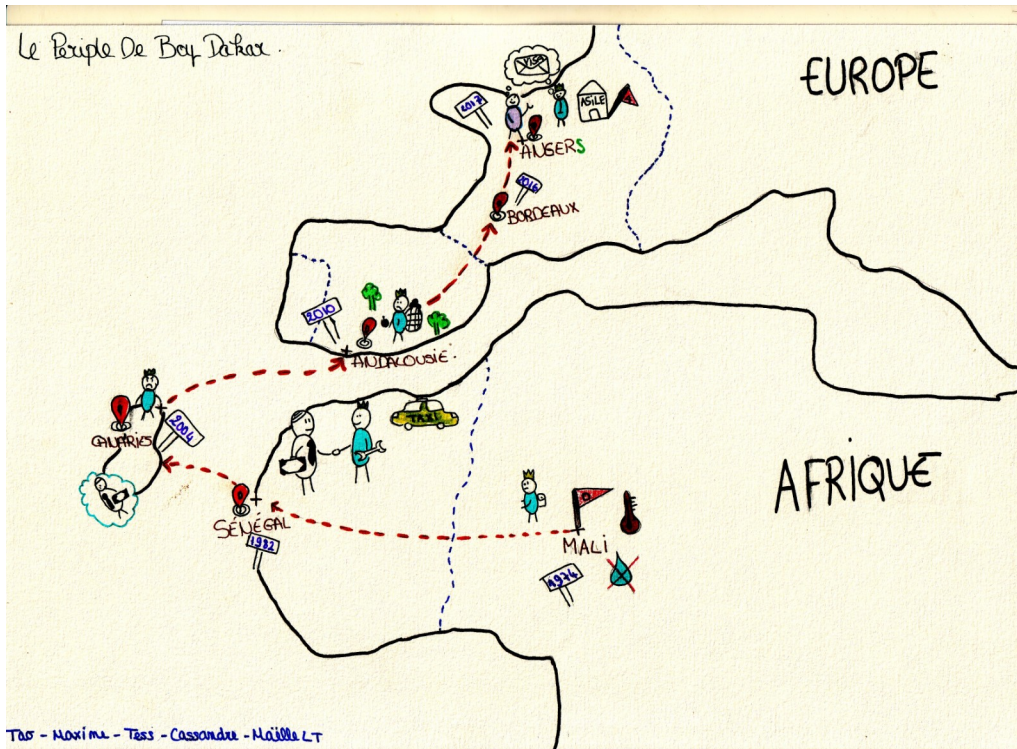 Le Périple De Boy Dakar.
EUROPE
VISA
2017
ASILE
ANGERS
2016
BORDEAUX
2010
ANDALOUSIE
CANARIES
2004
TAXI
AFRIQUE
SÉNÉGAL
1982
MALI
1974
Tao - Maxime - Tess - Cassandre - Maëlle LT